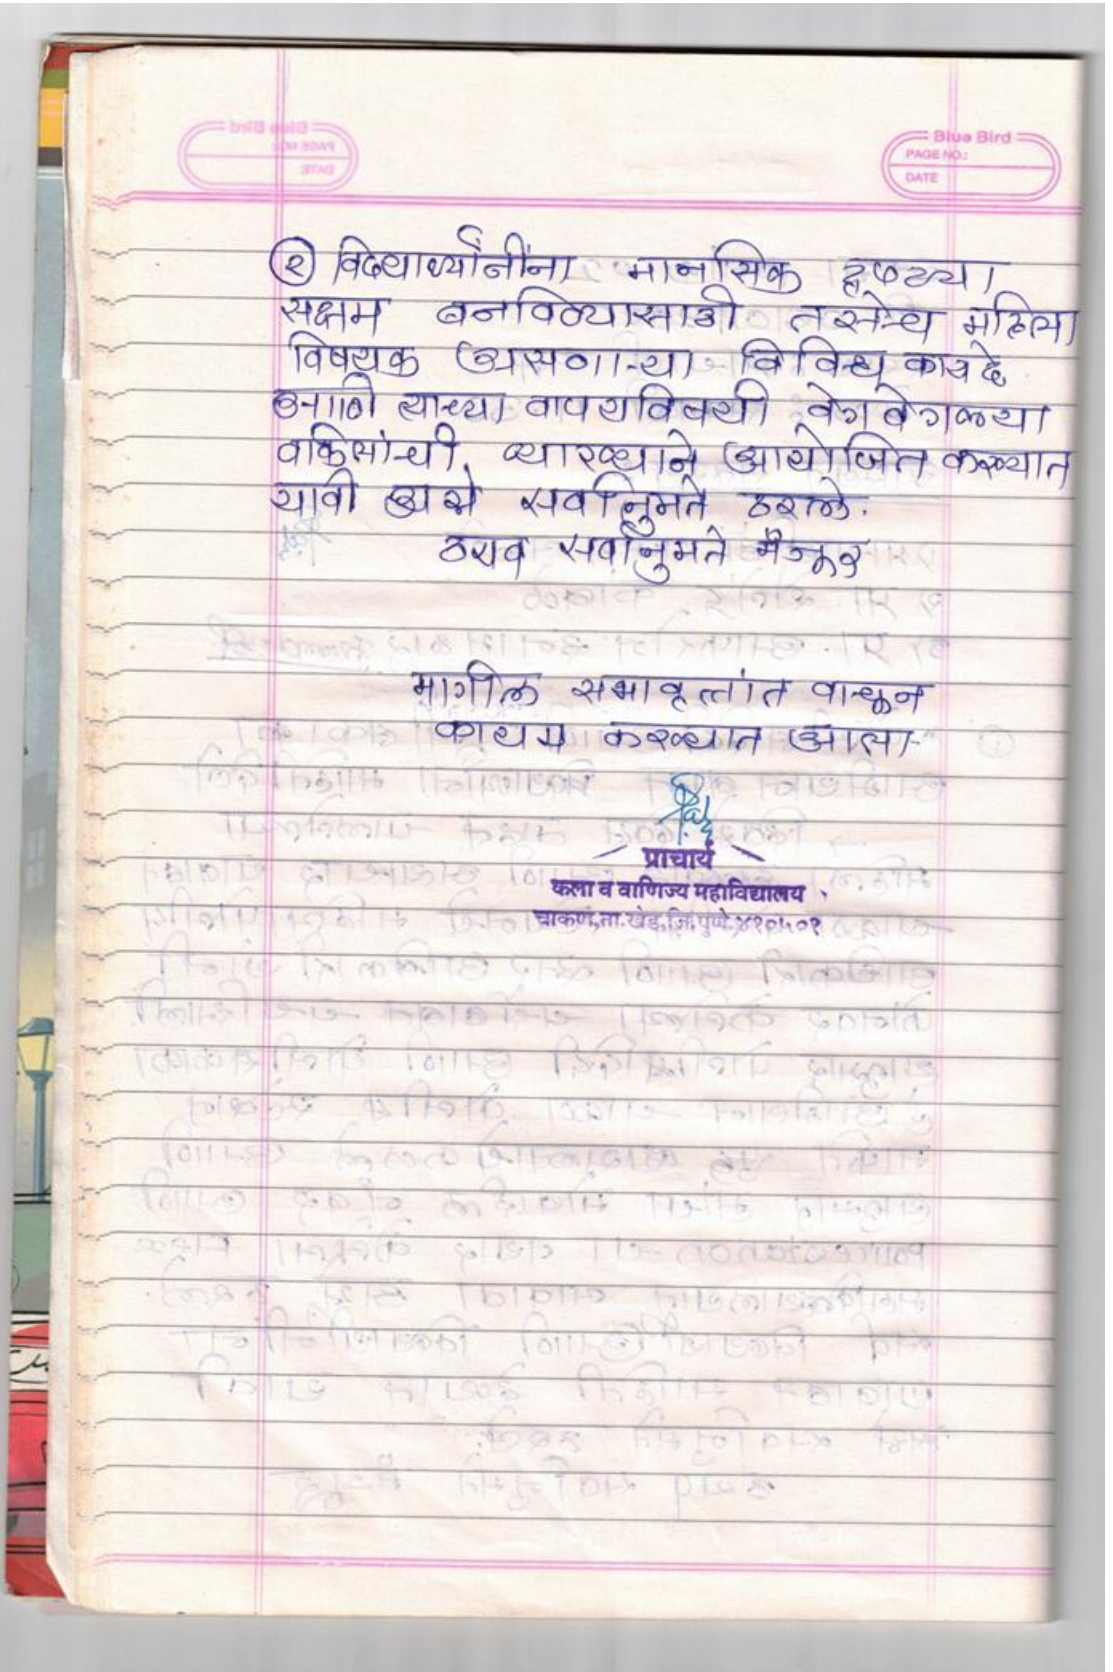 Blue Bird
PAGE NO.:
DATE
२ विद्यार्थ्यांनींना मानसिक दृष्ट्या
सक्षम बनविण्यासाठी तसेच महिला
विषयक असणाऱ्या विविध कायदे
आणि त्याच्या वापराविषयी वेगवेगळ्या
वकिलांची व्याख्याने आयोजित करण्यात
यावी असे सर्वानुमते ठरले.
ठराव सर्वानुमते मंजूर
मागील सभावृत्तांत वाचून
कायम करण्यात आला
प्राचार्य
कला व वाणिज्य महाविद्यालय
चाकण, ता. खेड, जि. पुणे. ४१०५०१